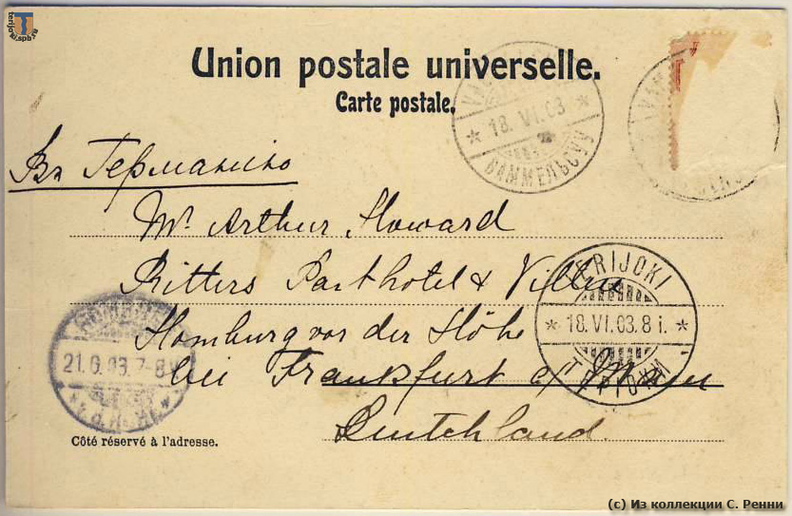 terijoki.spb.ru
Union postale universelle.
Carte postale.
18. VI. 03
ВАММЕЛЬСУУ
Въ Германію
Mr. Arthur Howard
Ritters Parkhotel & Villas
Homburg vor der Höhe
bei Frankfurt a/ Main
Deutchland.
TERIJOKI
18. VI. 03. 8 i.
21.6.03. 7-8
Côté réservé à l'adresse.
(c) Из коллекции С. Ренни